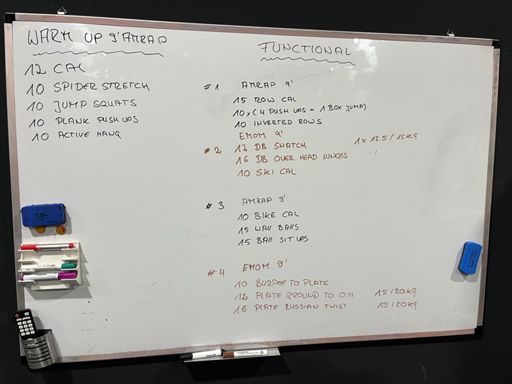 WARM UP 9' AMRAP
12 CAL
10 SPIDER STRETCH
10 JUMP SQUATS
10 PLANK PUSH UPS
10 ACTIVE HANG
FUNCTIONAL
#1 AMRAP 9'
15 ROW CAL
10x (4 PUSH UPS - 1 BOX JUMP)
10 INVERTED ROWS
EMOM 9'
#2 12 DB SNATCH 1x 12.5/15KG
16 DB OVER HEAD LUNGES
10 SKI CAL
#3 AMRAP 9'
10 BIKE CAL
15 WALL BALLS
15 BALL SIT UPS
#4 EMOM 9'
10 BURPEE TO PLATE
12 PLATE GROUND TO O.H 15/20KG
16 PLATE RUSSIAN TWIST 15/20KG